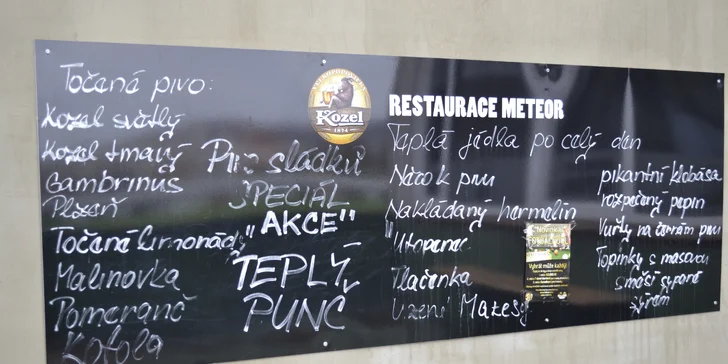 Točená pivo:
Kozel světlý
Kozel tmavý
Gambrinus
Plzeň
Točená limonády
Malinovka
Pomeranč
Kofola
Kozel
1874
sládků
SPECIÁL
"AKCE"
TEPLÝ
PUNČ
RESTAURACE METEOR
Teplá jídla po celý den
Něco k pivu
Nakládaný hermelín
Utopenec
Tlačenka
Uzený Matesy
pikantní klobása
rozpečený papin
Vuřty na černém pivu
Topinky s masovou
směsí sypané
sýrem
Vybrat může každý